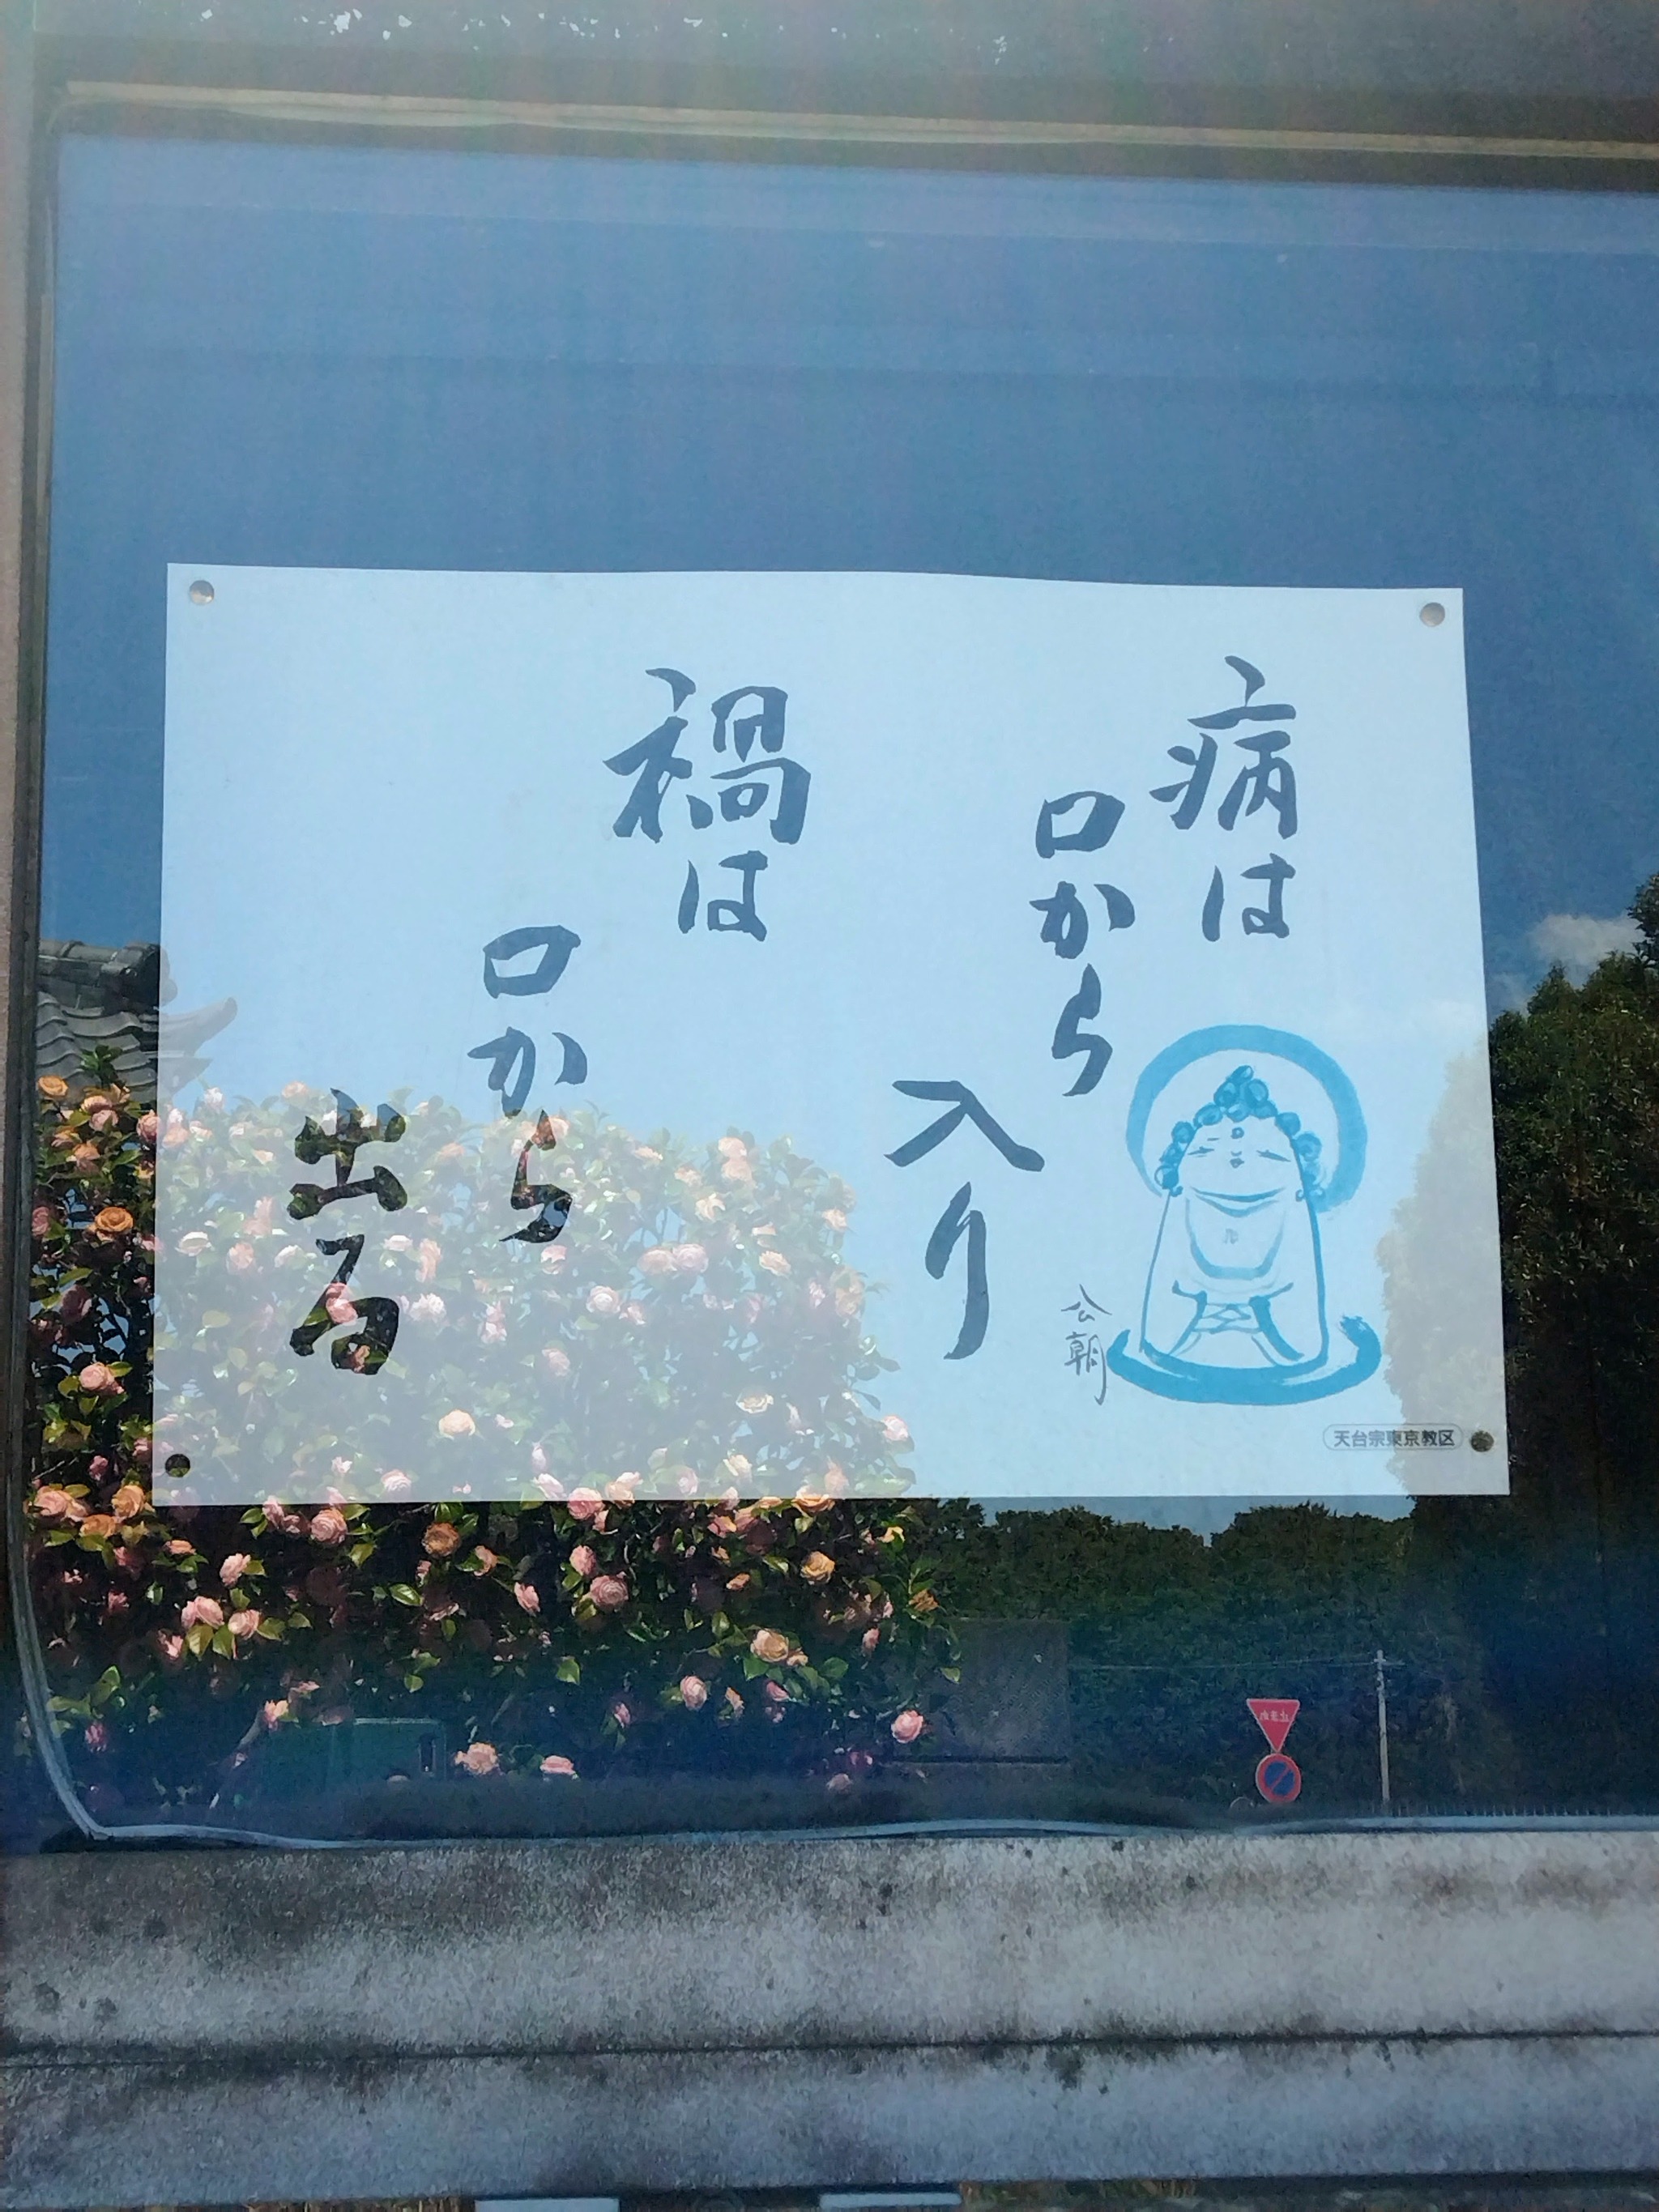 病は
口から
入り
禍は
口から
出る
公朝
天台宗東京教区
止まれ